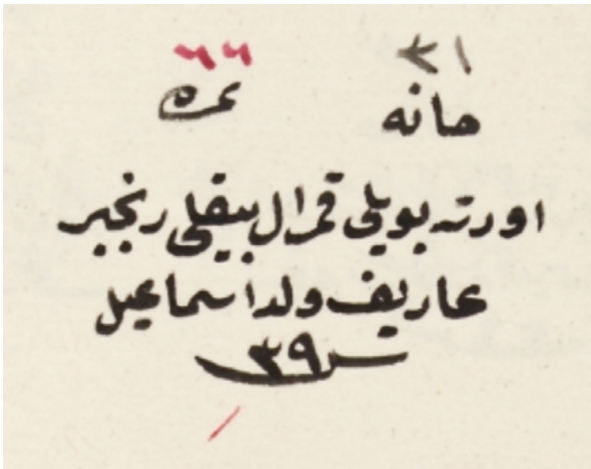 ٢١ ٦٦
خانه نمره
اورته بويلى قمرال بيقلى رنجبر
عاريف ولد اسماعيل
سن ٣٩